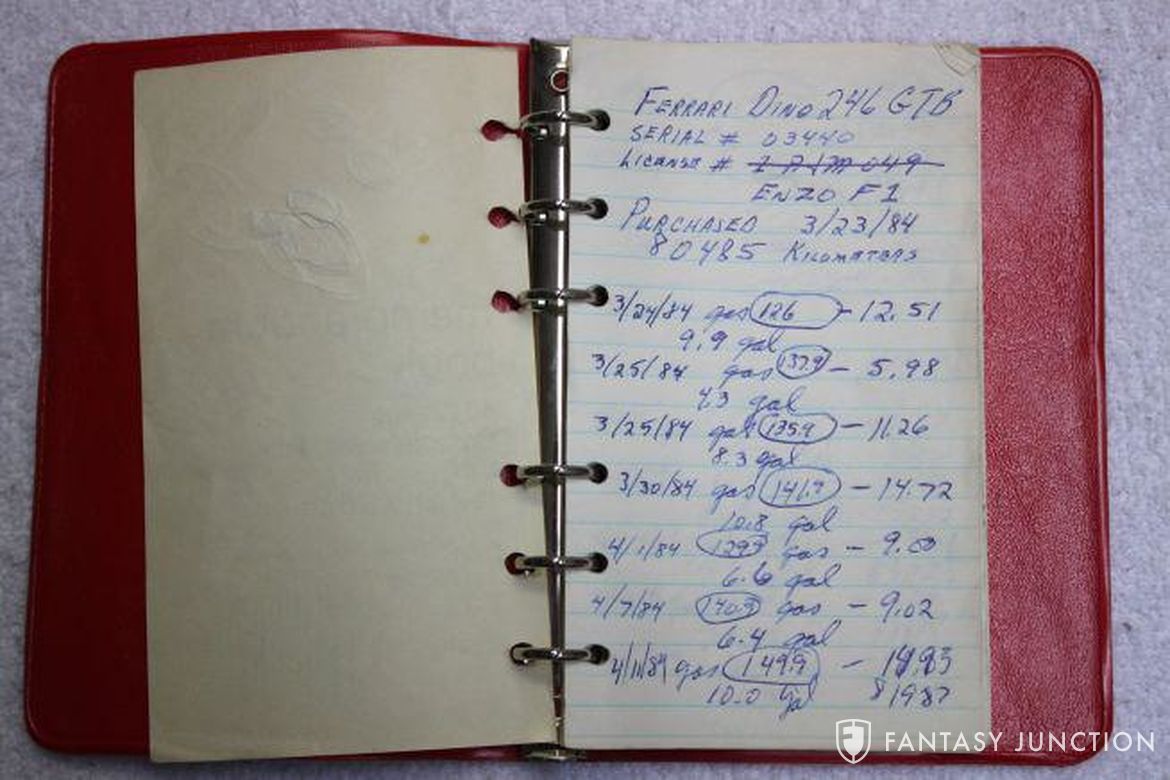 FERRARI DINO 246 GTB
SERIAL # 03440
LICENSE # 049
ENZO F1
PURCHASED 3/23/84
80485 KILOMETERS
3/24/84 gas 126 - 12.51
9.9 gal
3/25/84 gas 137.9 - 5.98
4.3 gal
3/25/84 gas 135.9 - 11.26
8.3 gal
3/30/84 gas - 14.72
10.8 gal
4/1/84 gas - 9.00
6.6 gal
4/7/84 140.9 gas - 9.02
6.4 gal
4/11/84 gas 149.9 -
10.0 gal 81987
FANTASY JUNCTION